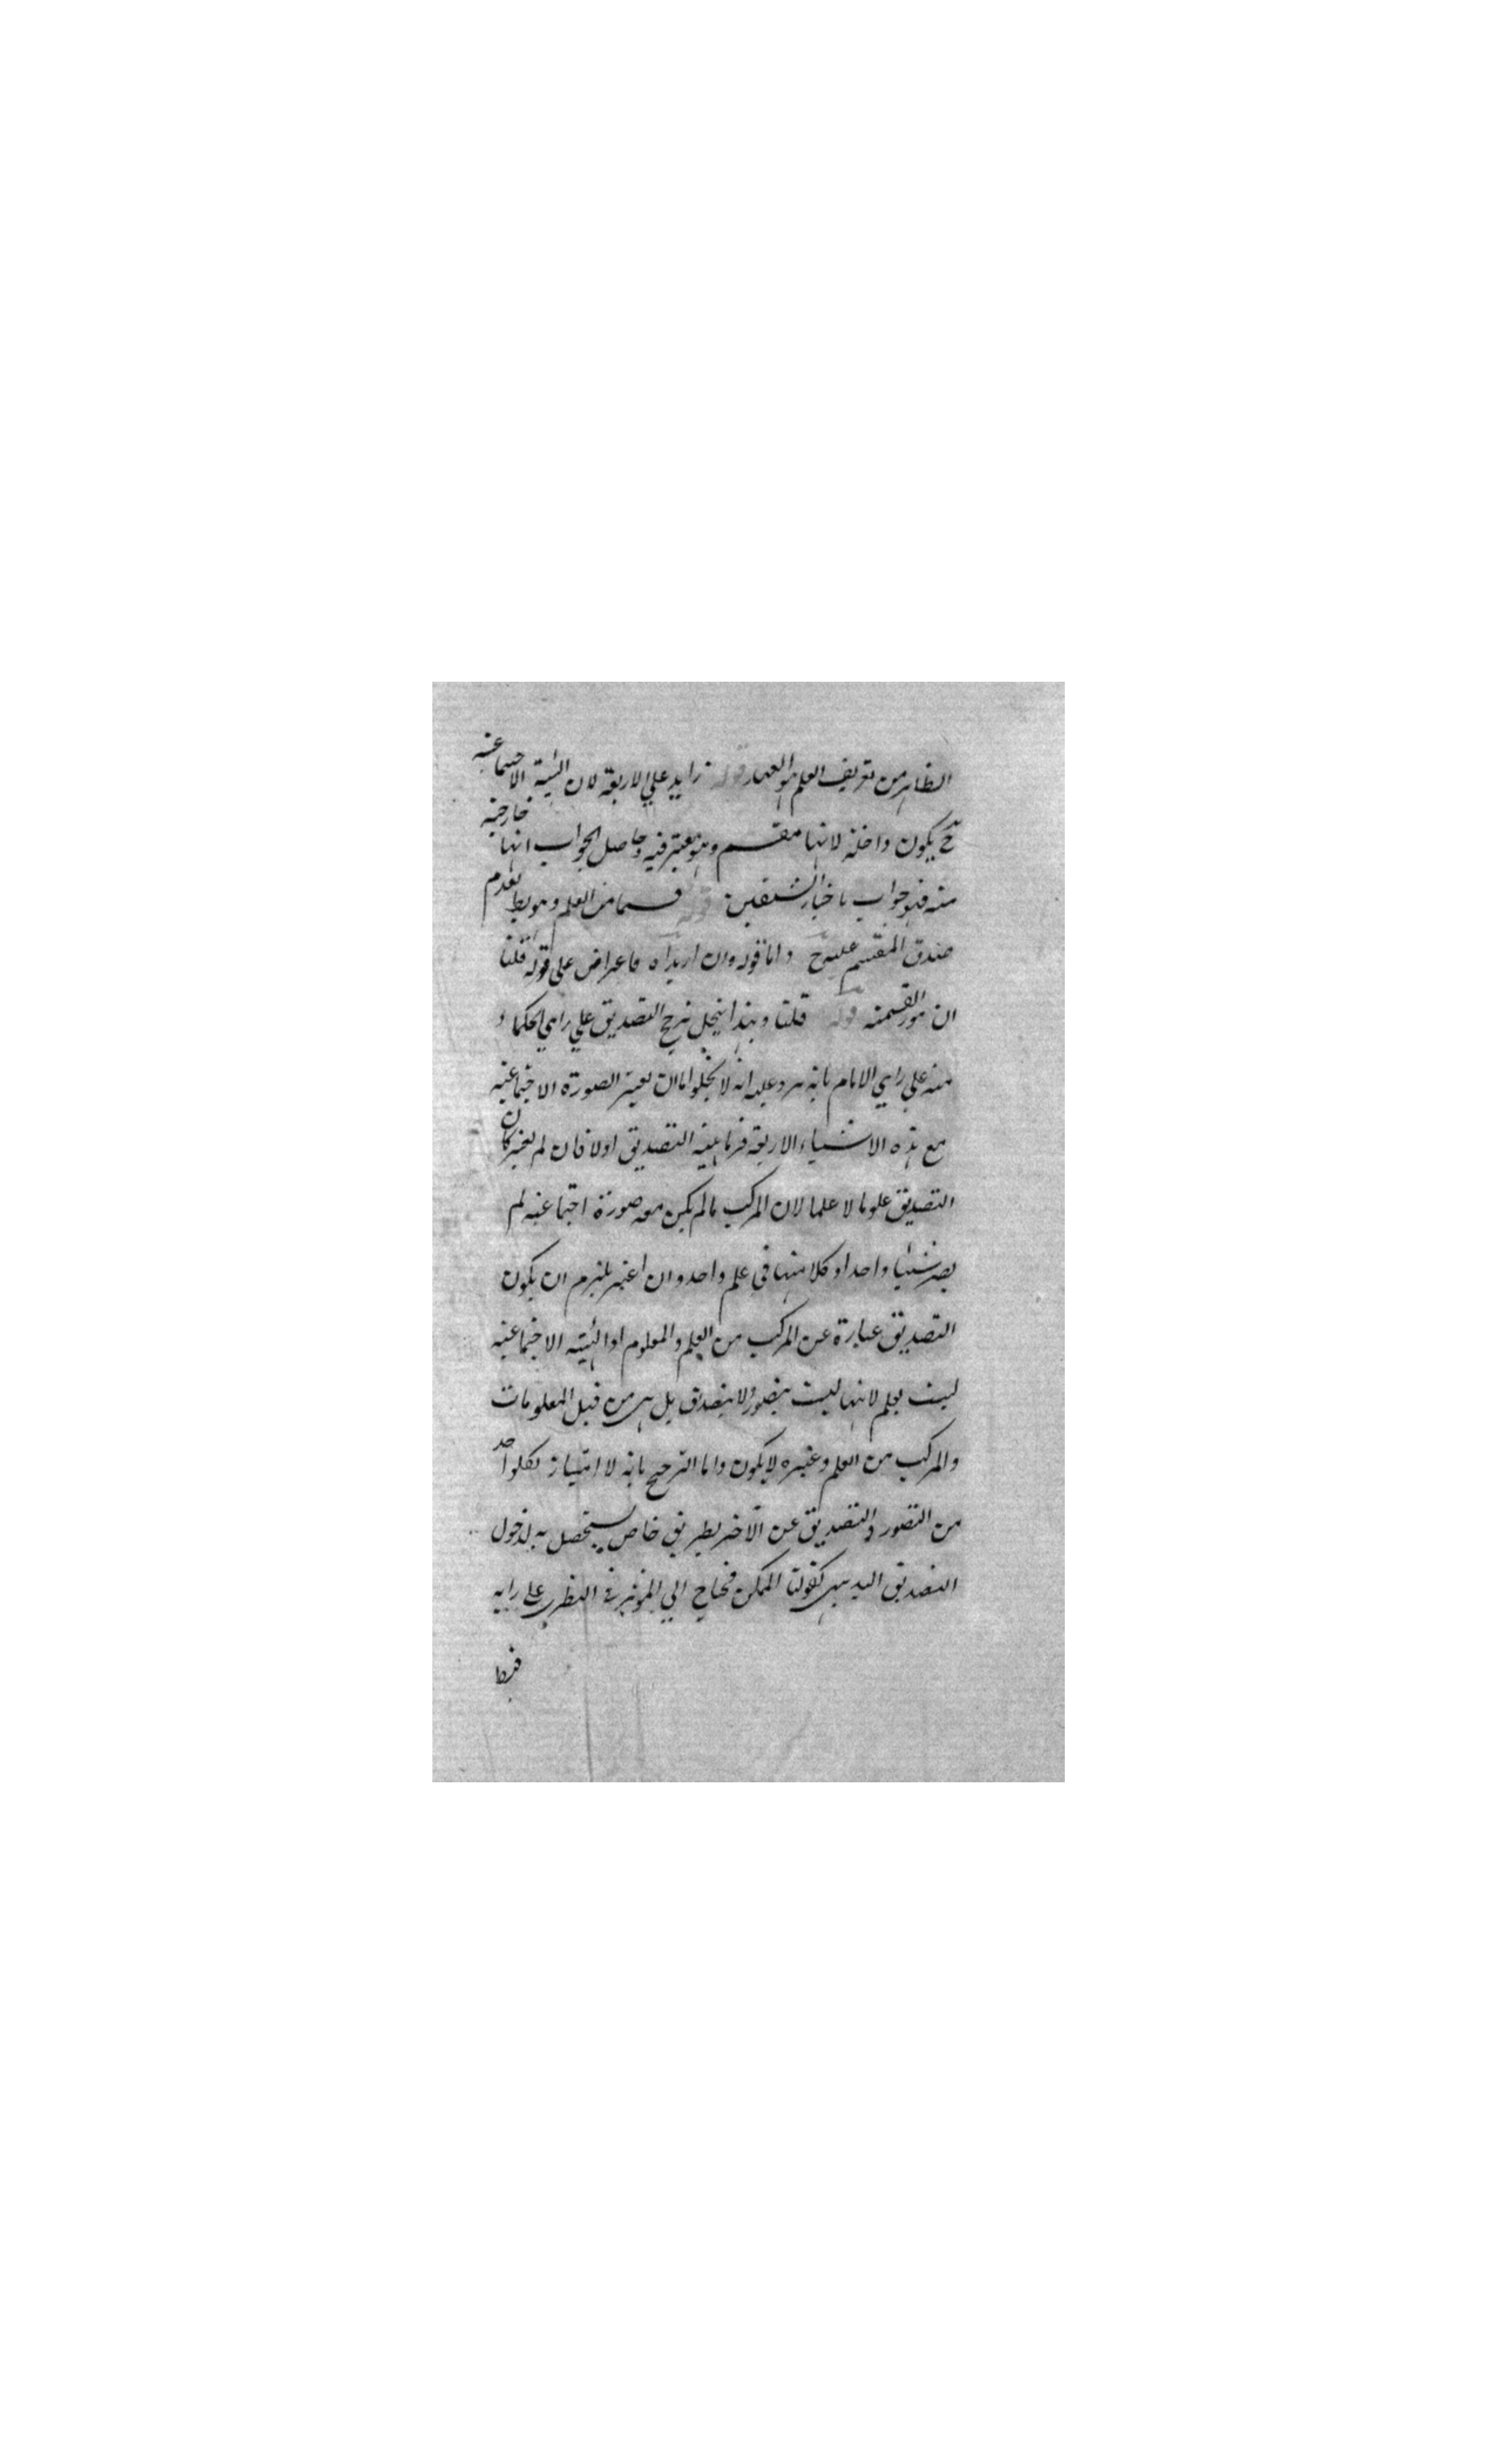 الظاهر من تعريف العلم هو العهد قوله زايد علي الاربعة لان الهيئة الاجتماعية
ح يكون داخلة لانها مقسم وهو معتبر فيه وحاصل الجواب انها خارجية
منه فهو جواب باختيار الشقين قوله قسما من العلم وهو بط لعدم
صدق المقسم عليه ح واما قوله وان اريد اه فاعراض على قوله قلنا
ان مورد القسمة قوله قلنا وبهذا ينجلي ترجح التصديق علي راي الحكما و
منه علي راي الامام بانه يرد عليه انه لا يخلوا اما ان يعتبر الصورة الاجتماعية
مع هذه الاشياء الاربعة في ماهية التصديق اولا فان لم يعتبر كان
التصديق علوما لا علما لان المركب ما لم يكن معه صورة اجتماعية لم
يصر شيئا واحدا وكلامنا في علم واحد وان اعتبر يلزم ان يكون
التصديق عبارة عن المركب من العلم والمعلوم اذ الهيئة الاجتماعية
ليست بعلم لانها ليست بتصور ولا بتصديق بل هي من قبيل المعلومات
والمركب من العلم وغيره لا يكون واما الترجيح بانه لا امتياز لكل واحد
من التصور والتصديق عن الآخر بطريق خاص يستحصل به لدخول
التصديق البديهي كقولنا الممكن محتاج الي المؤثر في النظري علي رايه